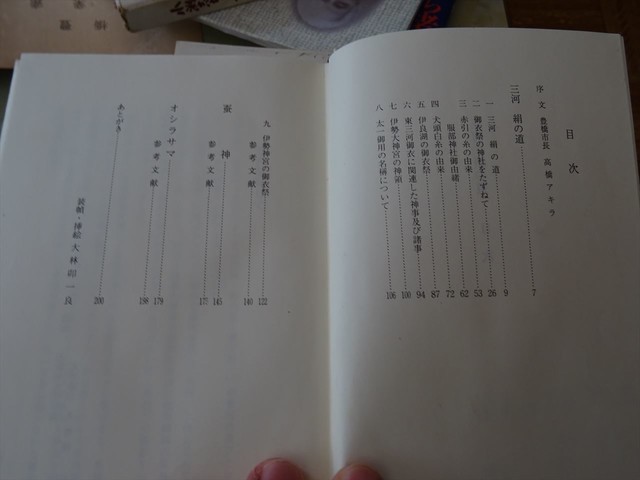 目次
序文 豊橋市長 高橋アキラ 7
三河 絹の道 9
一 三河 絹の道 26
二 御衣祭の神社をたずねて 53
三 赤引の糸の由来 62
服部神社御由緒 72
四 犬頭白糸の由来 87
五 伊良湖の御衣祭 94
六 東三河御衣に関連した神事及び諸事 100
七 伊勢大神宮の神領 106
八 太一御用の名称について
九 伊勢神宮の御衣祭 122
参考文献 140
蚕神 145
参考文献 175
オシラサマ 179
参考文献 198
あとがき 200
装幀・挿絵 大林卯一良